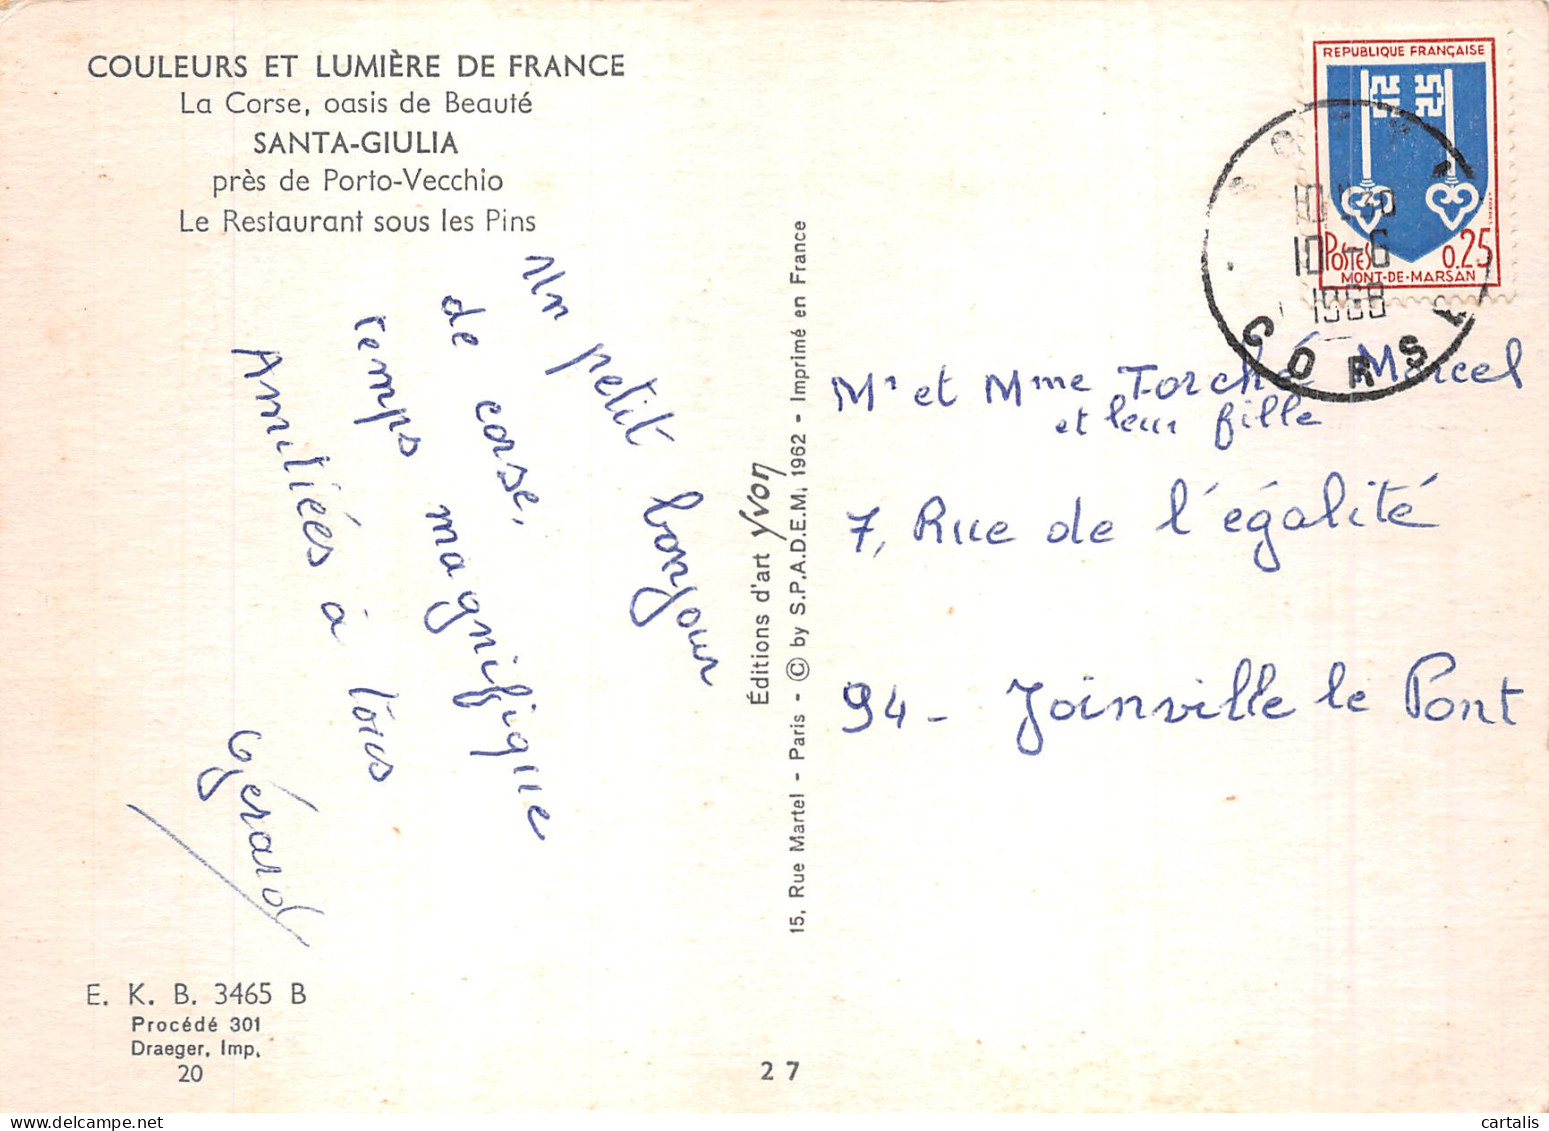 COULEURS ET LUMIÈRE DE FRANCE
La Corse, oasis de Beauté
SANTA-GIULIA
près de Porto-Vecchio
Le Restaurant sous les Pins
Un petit bonjour
de corse,
temps magnifique
Amitiées à tous
Gérard
E. K. B. 3465 B
Procédé 301
Draeger, Imp.
20
Éditions d'art Yvon
15, Rue Martel - Paris - © by S.P.A.D.E.M. 1962 - Imprimé en France
27
REPUBLIQUE FRANÇAISE
POSTES 0.25
MONT-DE-MARSAN
10-6
CORSE
Mr et Mme Torché Marcel
et leur fille
7, Rue de l'égalité
94 - Joinville le Pont
cartalis